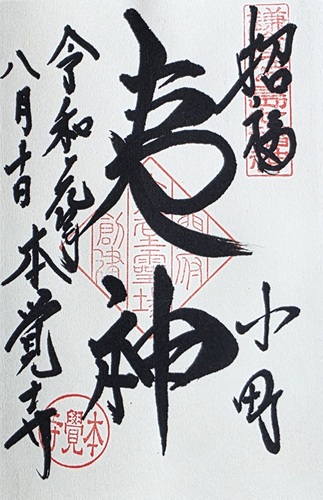 招福
小町
夷神
令和元年
八月十日
本覚寺
本覺寺